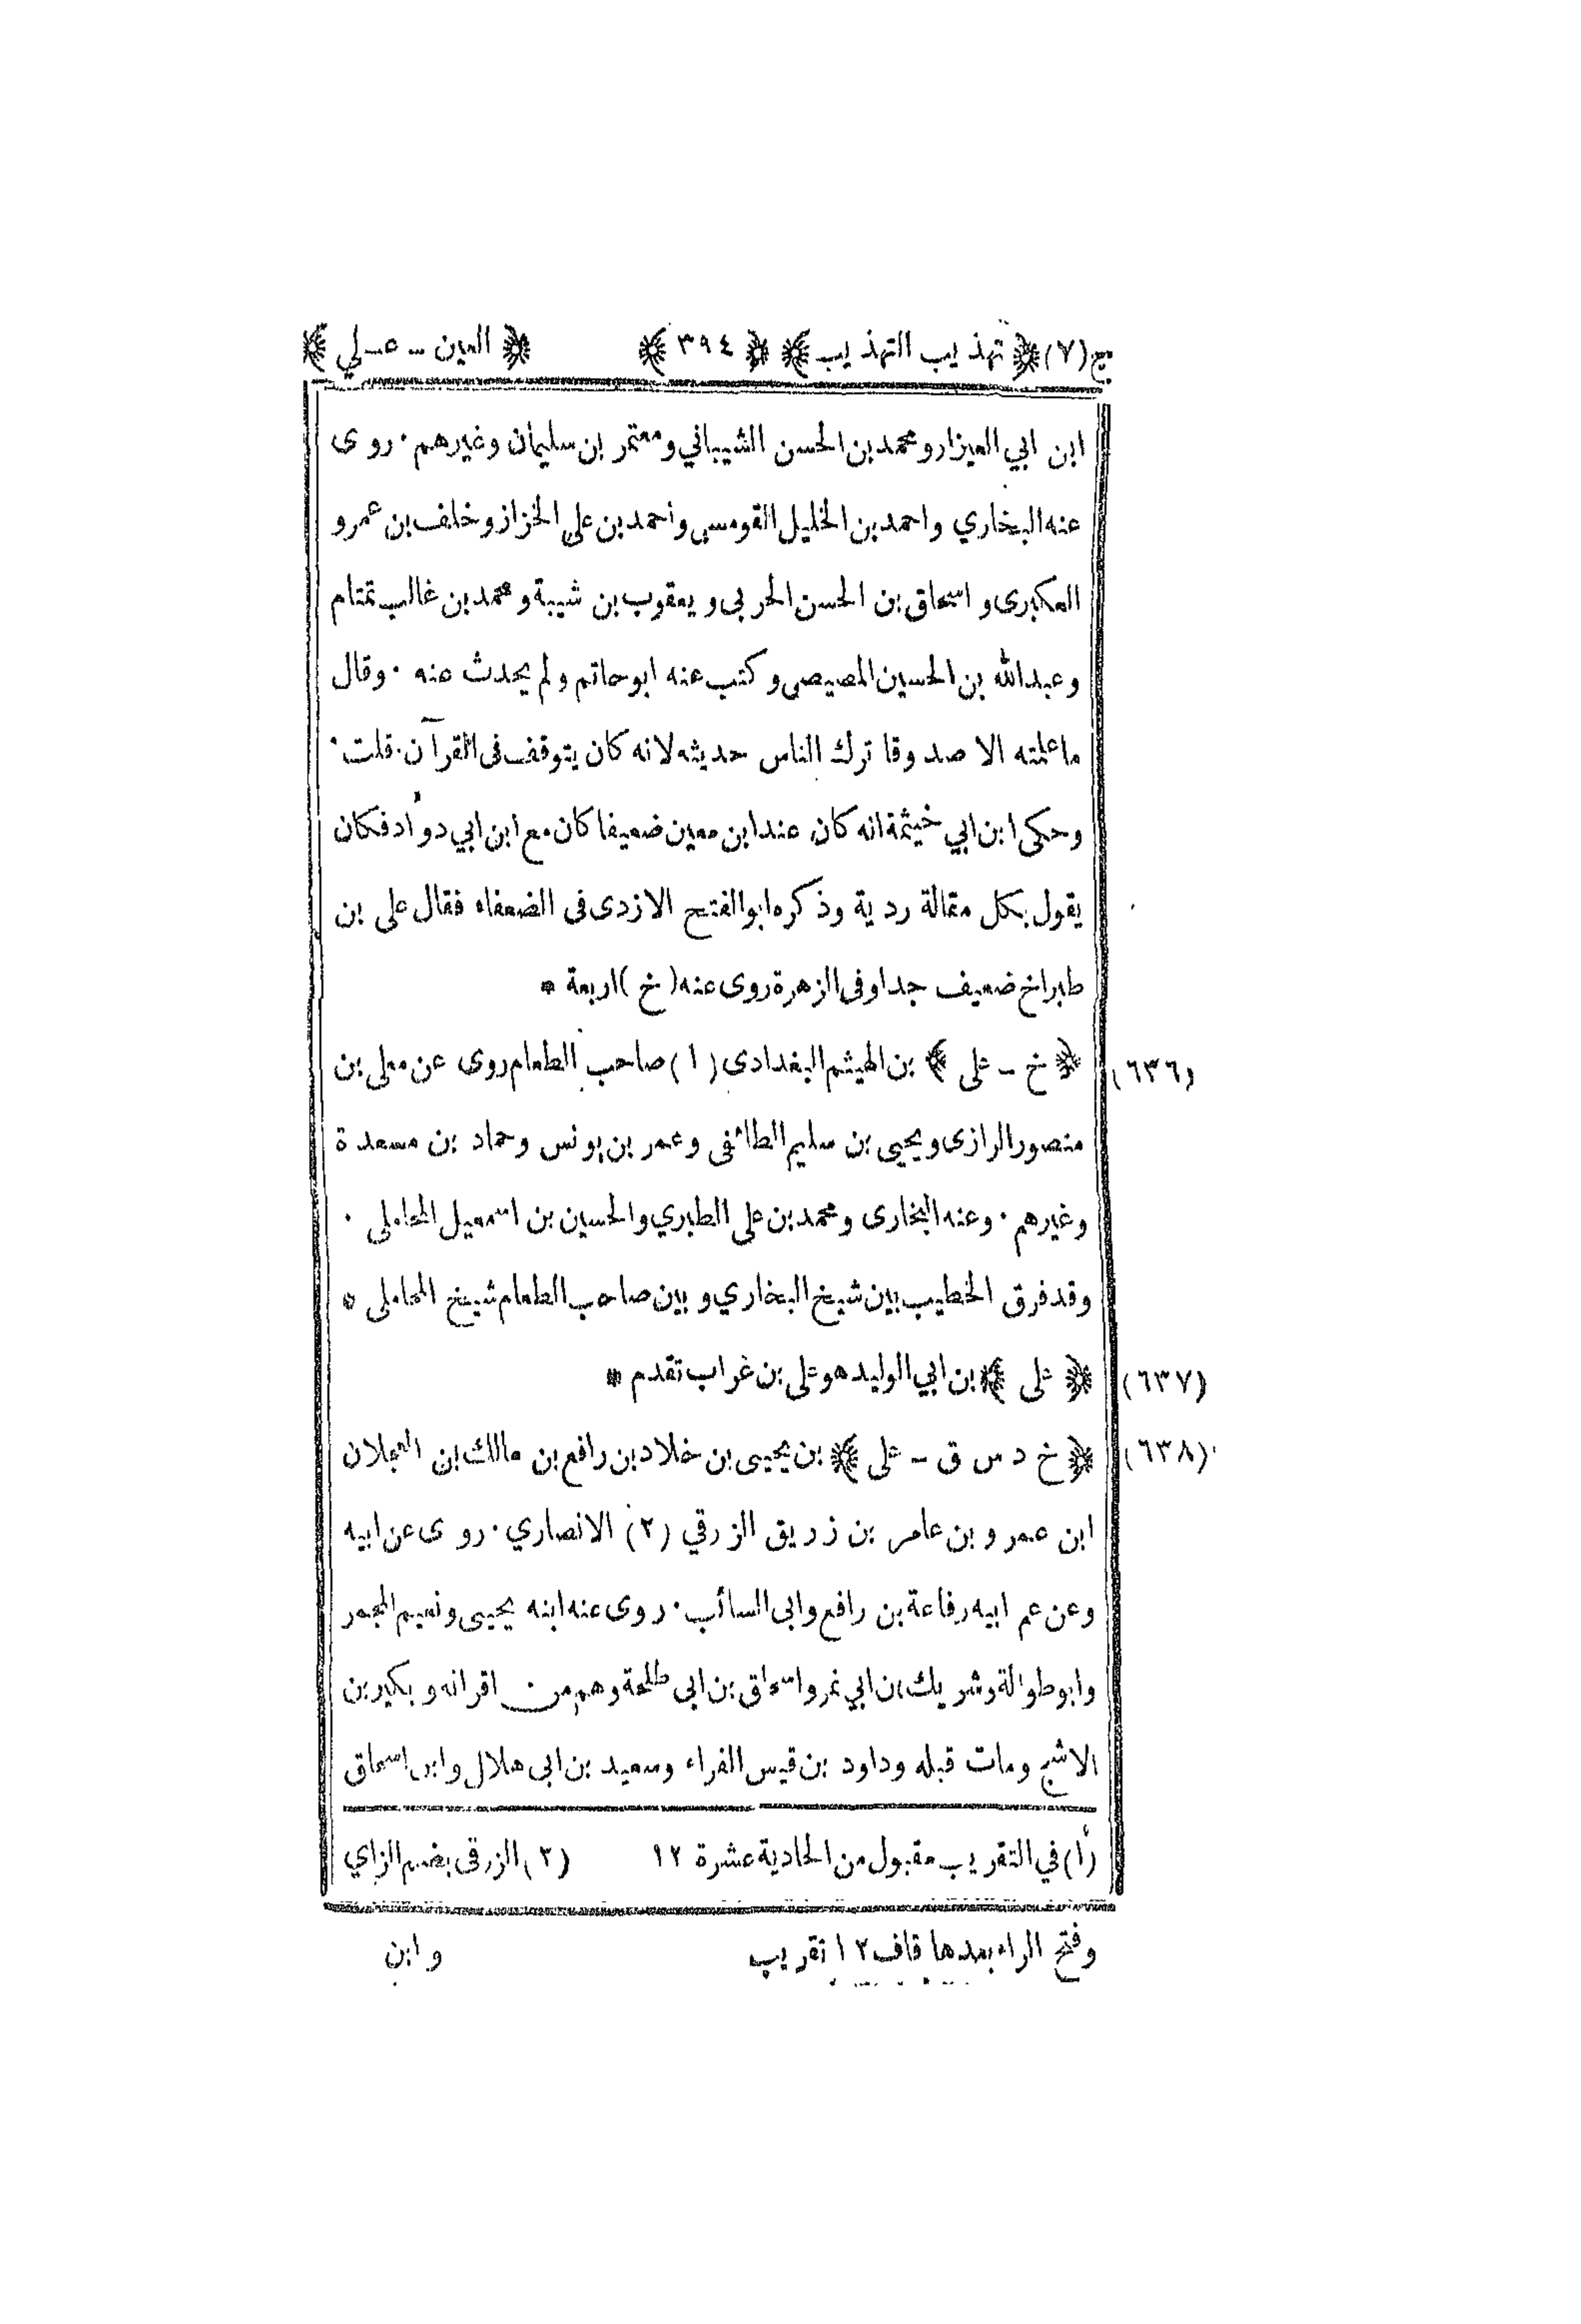 ج(٧) ﴿ تهذيب التهذيب ﴾ ﴿ ٣٩٤ ﴾ ﴿ العين - علي ﴾
ابن ابي العيزار ومحمد بن الحسن الشيباني ومعتمر بن سليمان وغيرهم · روى
عنه البخاري واحمد بن الخليل القومسي وأحمد بن علي الخزاز وخلف بن عمرو
العكبرى و اسحاق بن الحسن الحربى و يعقوب بن شيبة و محمد بن غالب تمتام
وعبد الله بن الحسين المصيصى وكتب عنه ابو حاتم ولم يحدث عنه · وقال
ما علمته الا صدوقا ترك الناس حديثه لانه كان يتوقف فى القرآن · قلت ·
وحكى ابن ابي خيثمة انه كان عند ابن معين ضعيفا كان مع ابن ابي دوأد فكان
يقول بكل مقالة ردية وذكره ابو الفتح الازدى فى الضعفاء فقال على بن
طبراخ ضعيف جدا وفى الزهرة روى عنه ( خ ) اربعة *
(٦٣٦) ﴿ خ - على ﴾ بن الهيثم البغدادى ( ١ ) صاحب الطعام روى عن معلى بن
منصور الرازى و يحيى بن سليم الطائفى وعمر بن يونس وحماد بن مسعدة
وغيرهم · وعنه البخارى ومحمد بن على الطبري والحسين بن اسمعيل المحاملى ·
وقد فرق الخطيب بين شيخ البخاري و بين صاحب الطعام شيخ المحاملى *
(٦٣٧) ﴿ على ﴾ بن ابي الوليد هو على بن غراب تقدم *
(٦٣٨) ﴿ خ د س ق - على ﴾ بن يحيى بن خلاد بن رافع بن مالك بن العجلان
ابن عمرو بن عامر بن زريق الزرقي (٢) الانصاري · روى عن ابيه
وعن عم ابيه رفاعة بن رافع وابى السائب · روى عنه ابنه يحيى ونعيم المجمر
وابو طوالة وشريك بن ابي نمر واسحاق بن ابى طلحة وهم من اقرانه و بكير بن
الاشج ومات قبله وداود بن قيس الفراء وسعيد بن ابى هلال وابن اسحاق
(١) في التقريب مقبول من الحادية عشرة ١٢ (٢) الزرقى بضم الزاي
وفتح الراء بعدها قاف ١٢ تقريب وابن